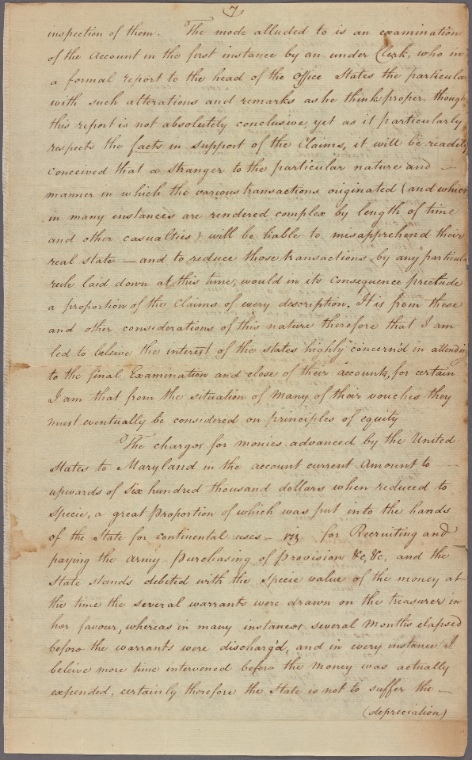 7
inspection of them. The mode alluded to is an examination
of the Account in the first instance by an under Clerk, who in
a formal report to the head of the Office States the particular
with such alterations and remarks as he think proper. though
this report is not absolutely conclusive, yet as it particularly
respects the facts in support of the Claims, it will be readily
conceived that a stranger to the particular nature and —
manner in which the various transactions originated (and which
in many instances are rendered complex by length of time
and other casualties) will be liable to misapprehend their
real state — and to reduce those transactions by any particular
rule laid down at this time, would in its consequence preclude
a proportion of the Claims of every description. It is from these
and other considerations of this nature therefore that I am
led to beleive the interest of the states highly concern'd in attendin
to the final Examination and close of their accounts, for certain
I am that from the situation of many of their vouches they
must eventually be considered on principles of equity
The charges for monies advanced by the United
States to Maryland in the account current Amount to —
upwards of Six hundred thousand dollars when reduced to
specie, a great proportion of which was put into the hands
of the State for continental uses — viz for Recruiting and
paying the army Purchasing of Provision &c, &c, and the
State stands debited with the specie value of the money at
the time the several warrants were drawn on the treasurer in
her favour, whereas in many instances several months elapsed
before the warrants were discharg'd, and in every instance I
beleive more time intervened before the money was actually
expended, certainly therefore the State is not to suffer the —
(depreciation)